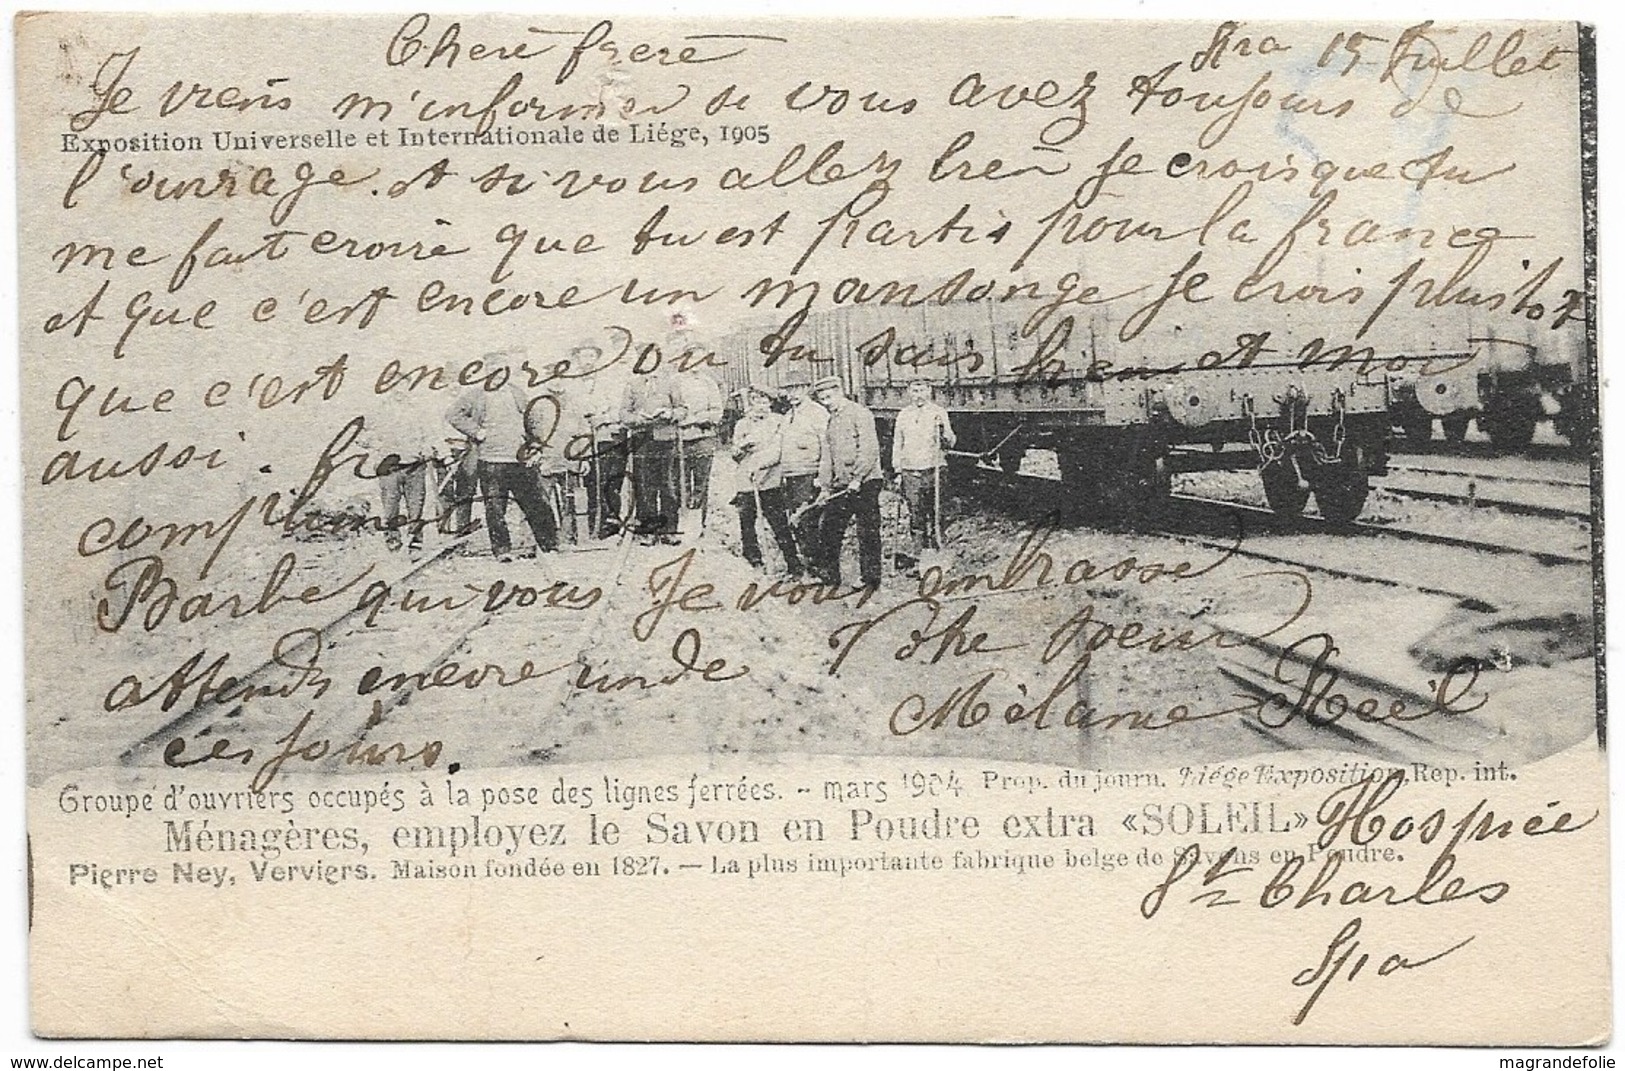 Chere frere Spa 15 Juillet
Je viens m'informer si vous avez toujours de
Exposition Universelle et Internationale de Liége, 1905
l'ouvrage. et si vous allez bien Je crois que tu
me fait croire que tu est partis pour la france
et que c'est encore un mansonge Je crois pluitot
que c'est encore ou tu sais bien et moi
aussi. bien des
compliments de
Barbe qui vous
attends encore un de
ces jours.
Je vous embrasse
Votre soeur
Mèlanie
Groupe d'ouvriers occupés à la pose des lignes ferrées. - mars 1904. Prop. du journ. Liége Exposition, Rep. int.
Ménagères, employez le Savon en Poudre extra «SOLEIL»
Pierre Ney, Verviers. Maison fondée en 1827. — La plus importante fabrique belge de Savons en Poudre.
Hospice
St Charles
Spa
delcampe.net
magrandefolie